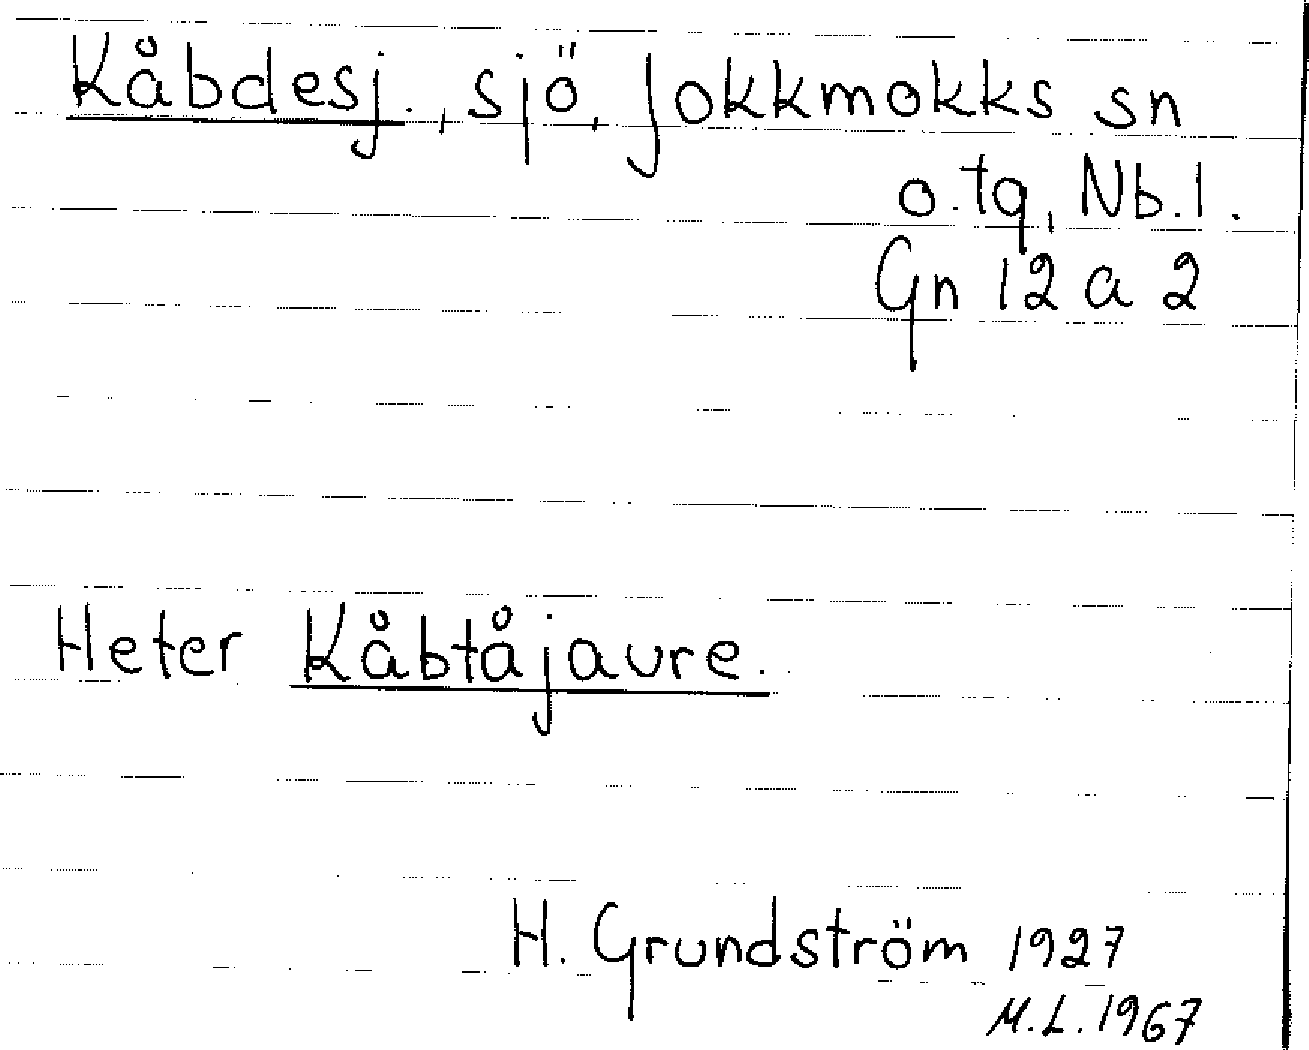 Kåbdesj., sjö, Jokkmokks sn
o. tg, Nb. l.
Gn 12 a 2
Heter Kåbtåjaure.
H. Grundström 1927
M.L. 1967